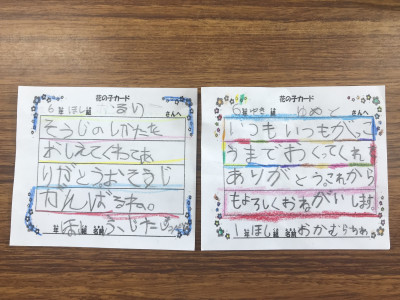 花の子カード
6年ほし組 さんへ
そうじのしかたを
おしえてくれてあ
りがとうおそうじ
がんばるね。
年 組 名前
花の子カード
6年ゆき組 ゆめとさんへ
いつもいつもがっこ
うまでおくってくれ
ありがとう。これから
もよろしくおねがいします
1年ほし組 名前 おかむらちか